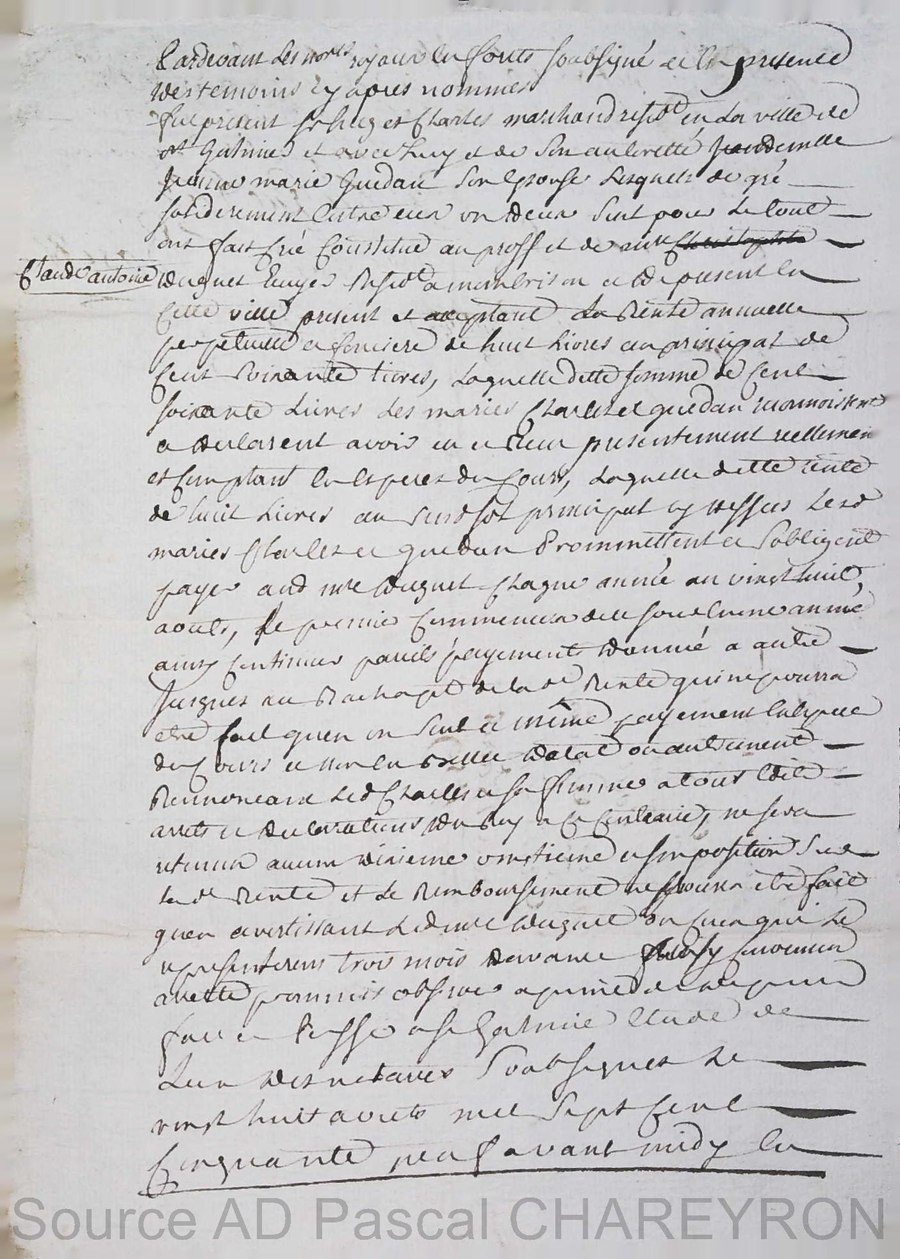 Pardevant les no.res royaux en forets soubsigné et en presence
des temoins cy apres nommés
fut present sr Charles marchand resid.t en la ville de
st Galmier et avec luy et de son authorité
Jeanne marie Guedan son Epouse Lesquels de gré
solidairement l'un d'eux seul pour le tout
ont fait crée Constitué au proffit de mre Christophle
Claude antoine
Duguet Ecuyer Resid.t a montbrison et de present en
cette ville present et acceptant La Rente annuelle
perpetuelle et fonciere de huit Livres au principal de
Cent soixante livres, Laquelle dette somme de Cent
soixante Livres Les maries Charles et guedan reconnoissent
et declarent avoir eu et Recu presentement reellement
et comptant en Especes du Cours, Laquelle dette rente
de huit Livres au susd. sort principal cy dessus Lesd.
maries Charles et guedan Promettent et s'obligent
payer aud. mre duguet Chaque année au vingt huit
aouts, le premier commencera
ainsy continuer pareils payement d'année a autre
Jusques au Rachapt de lad. Rente qui ne pourra
etre fait quen un seul et même payement en Espece
du Cours et non en Billet detat ou autrement
Renonceant Led Charles et sa femme a tout Edit
arrets et declarations du Roy a ce contraire, ne sera
retenu aucun dixieme vingtieme et imposition sur
lad. Rente et le Remboursement ne pourra etre fait
quen avertissant Led. mre duguet ou ceux qui le
representerons trois mois davance
promis observer a peine de
fait et Passé a st Galmier Etude de
Lun des notaires Soubsignes Le
vingt huit aouts mil sept cent
Cinquante neuf avant midy En
Source AD Pascal CHAREYRON